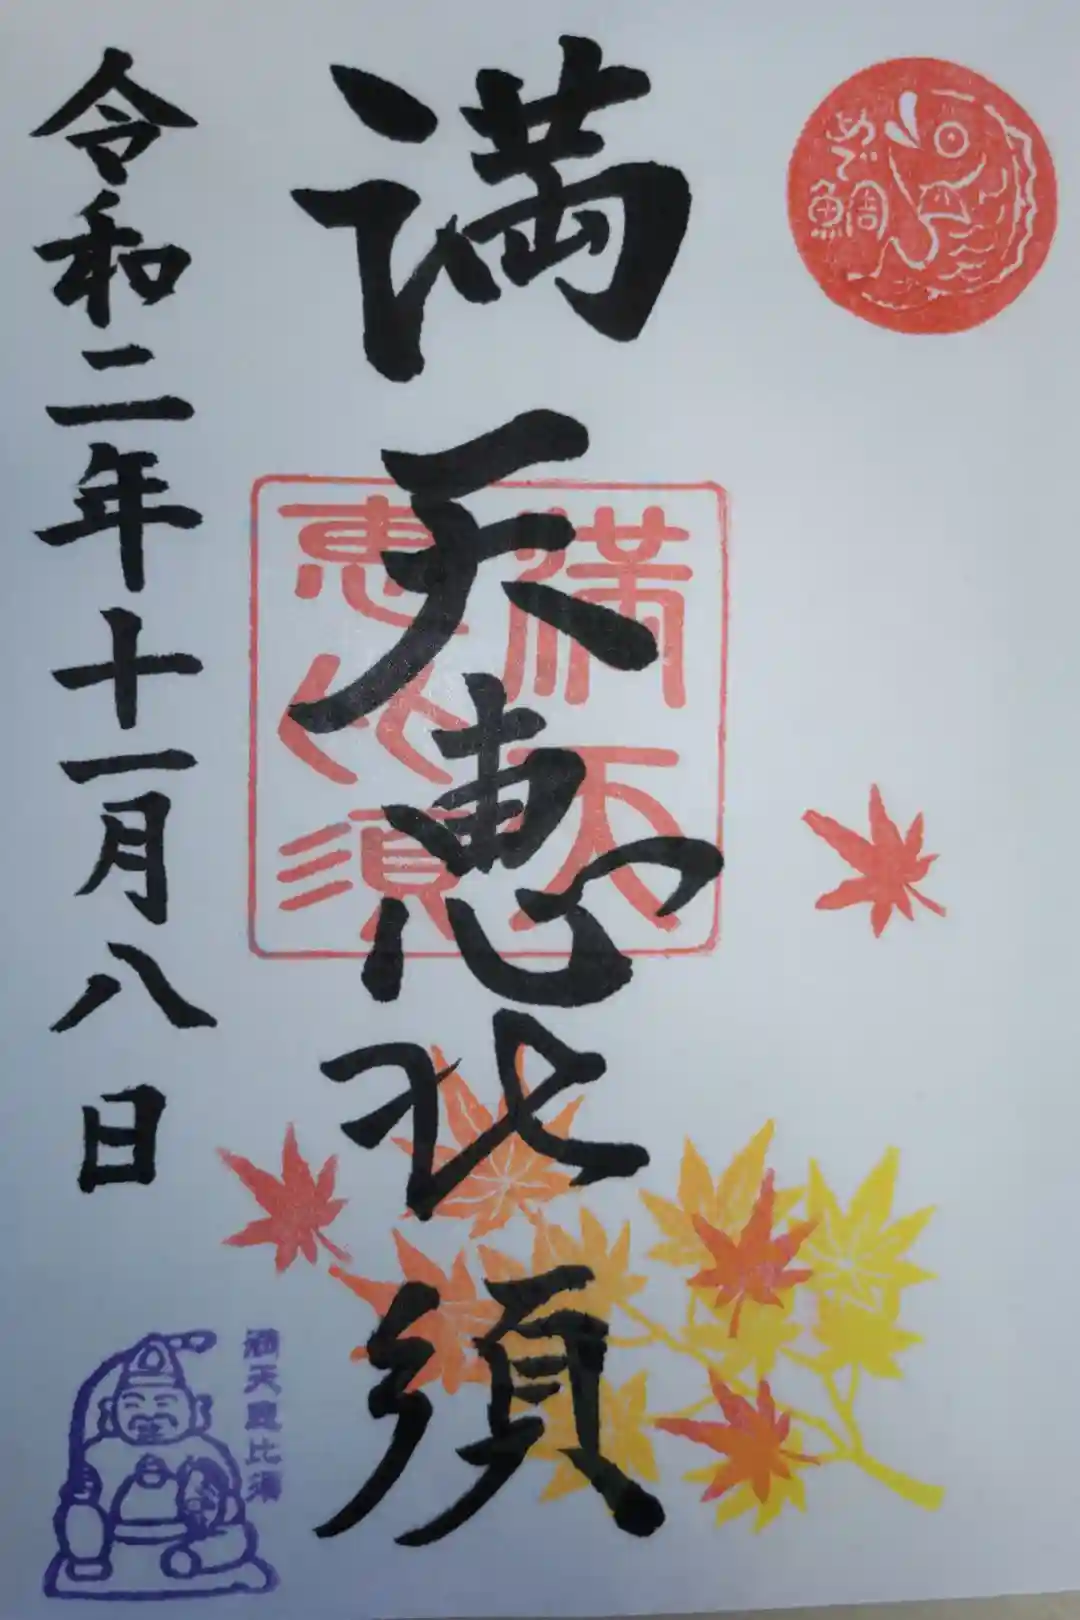 めで
鯛
満天恵比須
満天
恵比須
令和二年十一月八日
満天恵比須